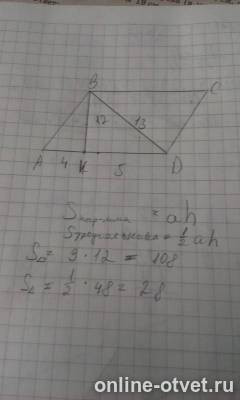 B
C
12
13
A 4 K 5 D
S = ah
S треугольника = 1/2 ah
S = 9 · 12 = 108
S = 1/2 · 48 = 28
online-otvet.ru